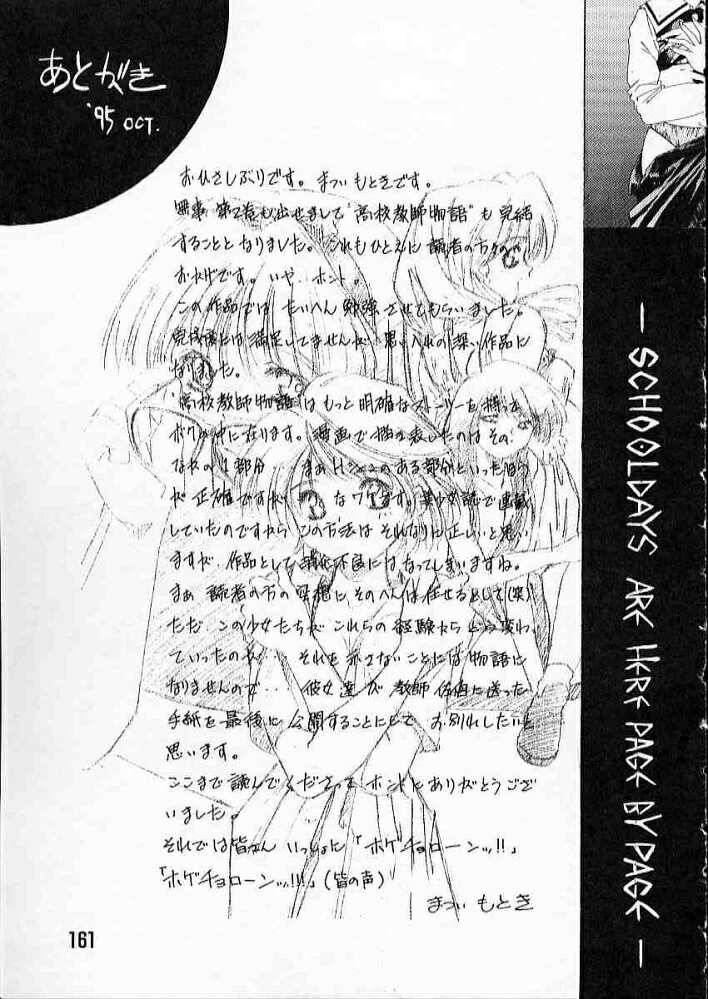 あとがき
'95 OCT.
お久しぶりです。まついもときです。
無事 第2巻も出せまして"高校教師物語"も完結
することとなりました。これもひとえに読者の方々の
おかげです。いや‥ホント。
この作品では たいへん勉強させてもらいました。
完成度には満足してませんが 思い入れの深い作品に
なりました。
"高校教師物語"はもっと明確なストーリーを持って
ボクの中に在ります。漫画で描き表したのはその
なかの1部分‥ まぁHシーンのある部分といった方
が 正確ですが なワケです。美少女誌で連載
していたのですから この方法は それなりに正しいと思い
ますが、作品として消化不良にはなってしまいますね。
まぁ 読者の方の妄想に、そのへんは任せるとして(笑)
ただ、この少女たちが これらの経験から どう変わ
っていったのか‥ それを示さないことには物語に
なりませんので‥ 彼女達が 教師 に送った
手紙を最後に 公開することにして お別れしたいと
思います。
ここまで読んでくださって ホントにありがとうござ
いました。
それでは皆さん いっしょに「ホゲチョローンッ!!」
「ホゲチョローンッ!!!」(皆の声)
まつい もとき
— SCHOOLDAYS ARE HERE PAGE BY PAGE —
161